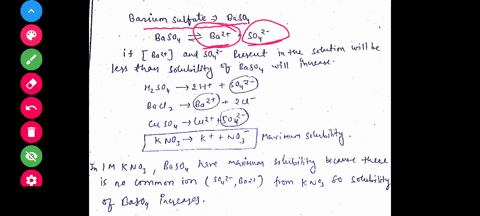 Barium sulfate ⇒ BaSO₄
BaSO₄ ⇌ Ba²⁺ + SO₄²⁻
if [Ba²⁺] and SO₄²⁻ Present in the solution will be
less than solubility of BaSO₄ will increase.
H₂SO₄ → 2H⁺ + SO₄²⁻
BaCl₂ → Ba²⁺ + 2Cl⁻
CuSO₄ → Cu²⁺ + SO₄²⁻
KNO₃ → K⁺ + NO₃⁻ Maximum solubility.
In 1M KNO₃, BaSO₄ have maximum solubility because there
is no common ion (SO₄²⁻, Ba²⁺) from KNO₃ so solubility
of BaSO₄ increases.